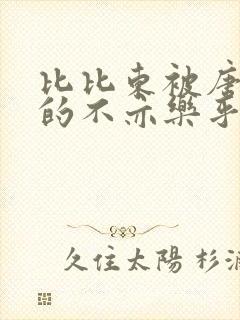 比比东被唐
的不亦樂乎
久住太陽 杉浦